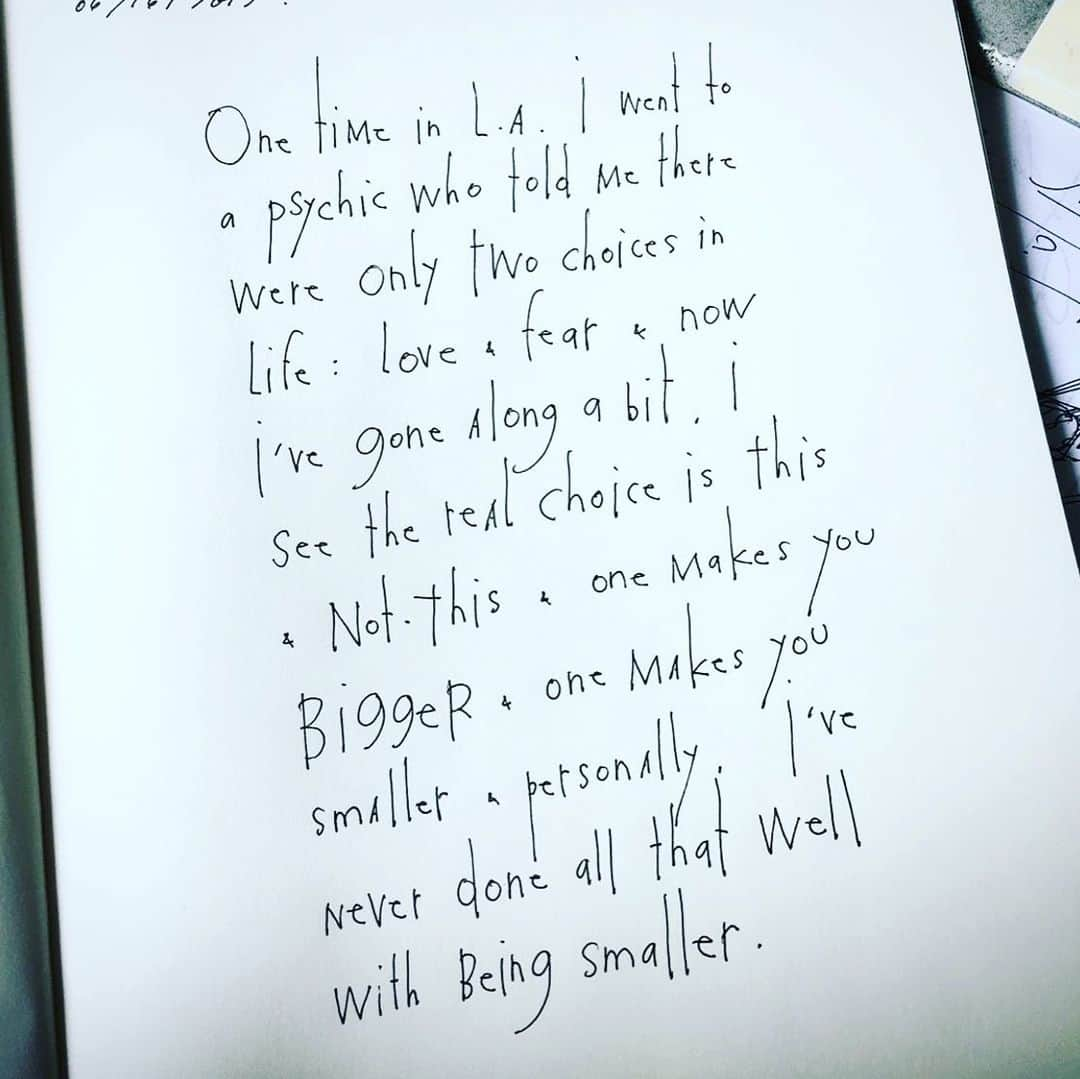 One time in L.A. I went to
a psychic who told me there
were only two choices in
life: love & fear & now
I've gone along a bit, I
see the real choice is this
& Not-this & one makes you
BiggeR & one makes you
smaller & personally, I've
never done all that well
with Being smaller.